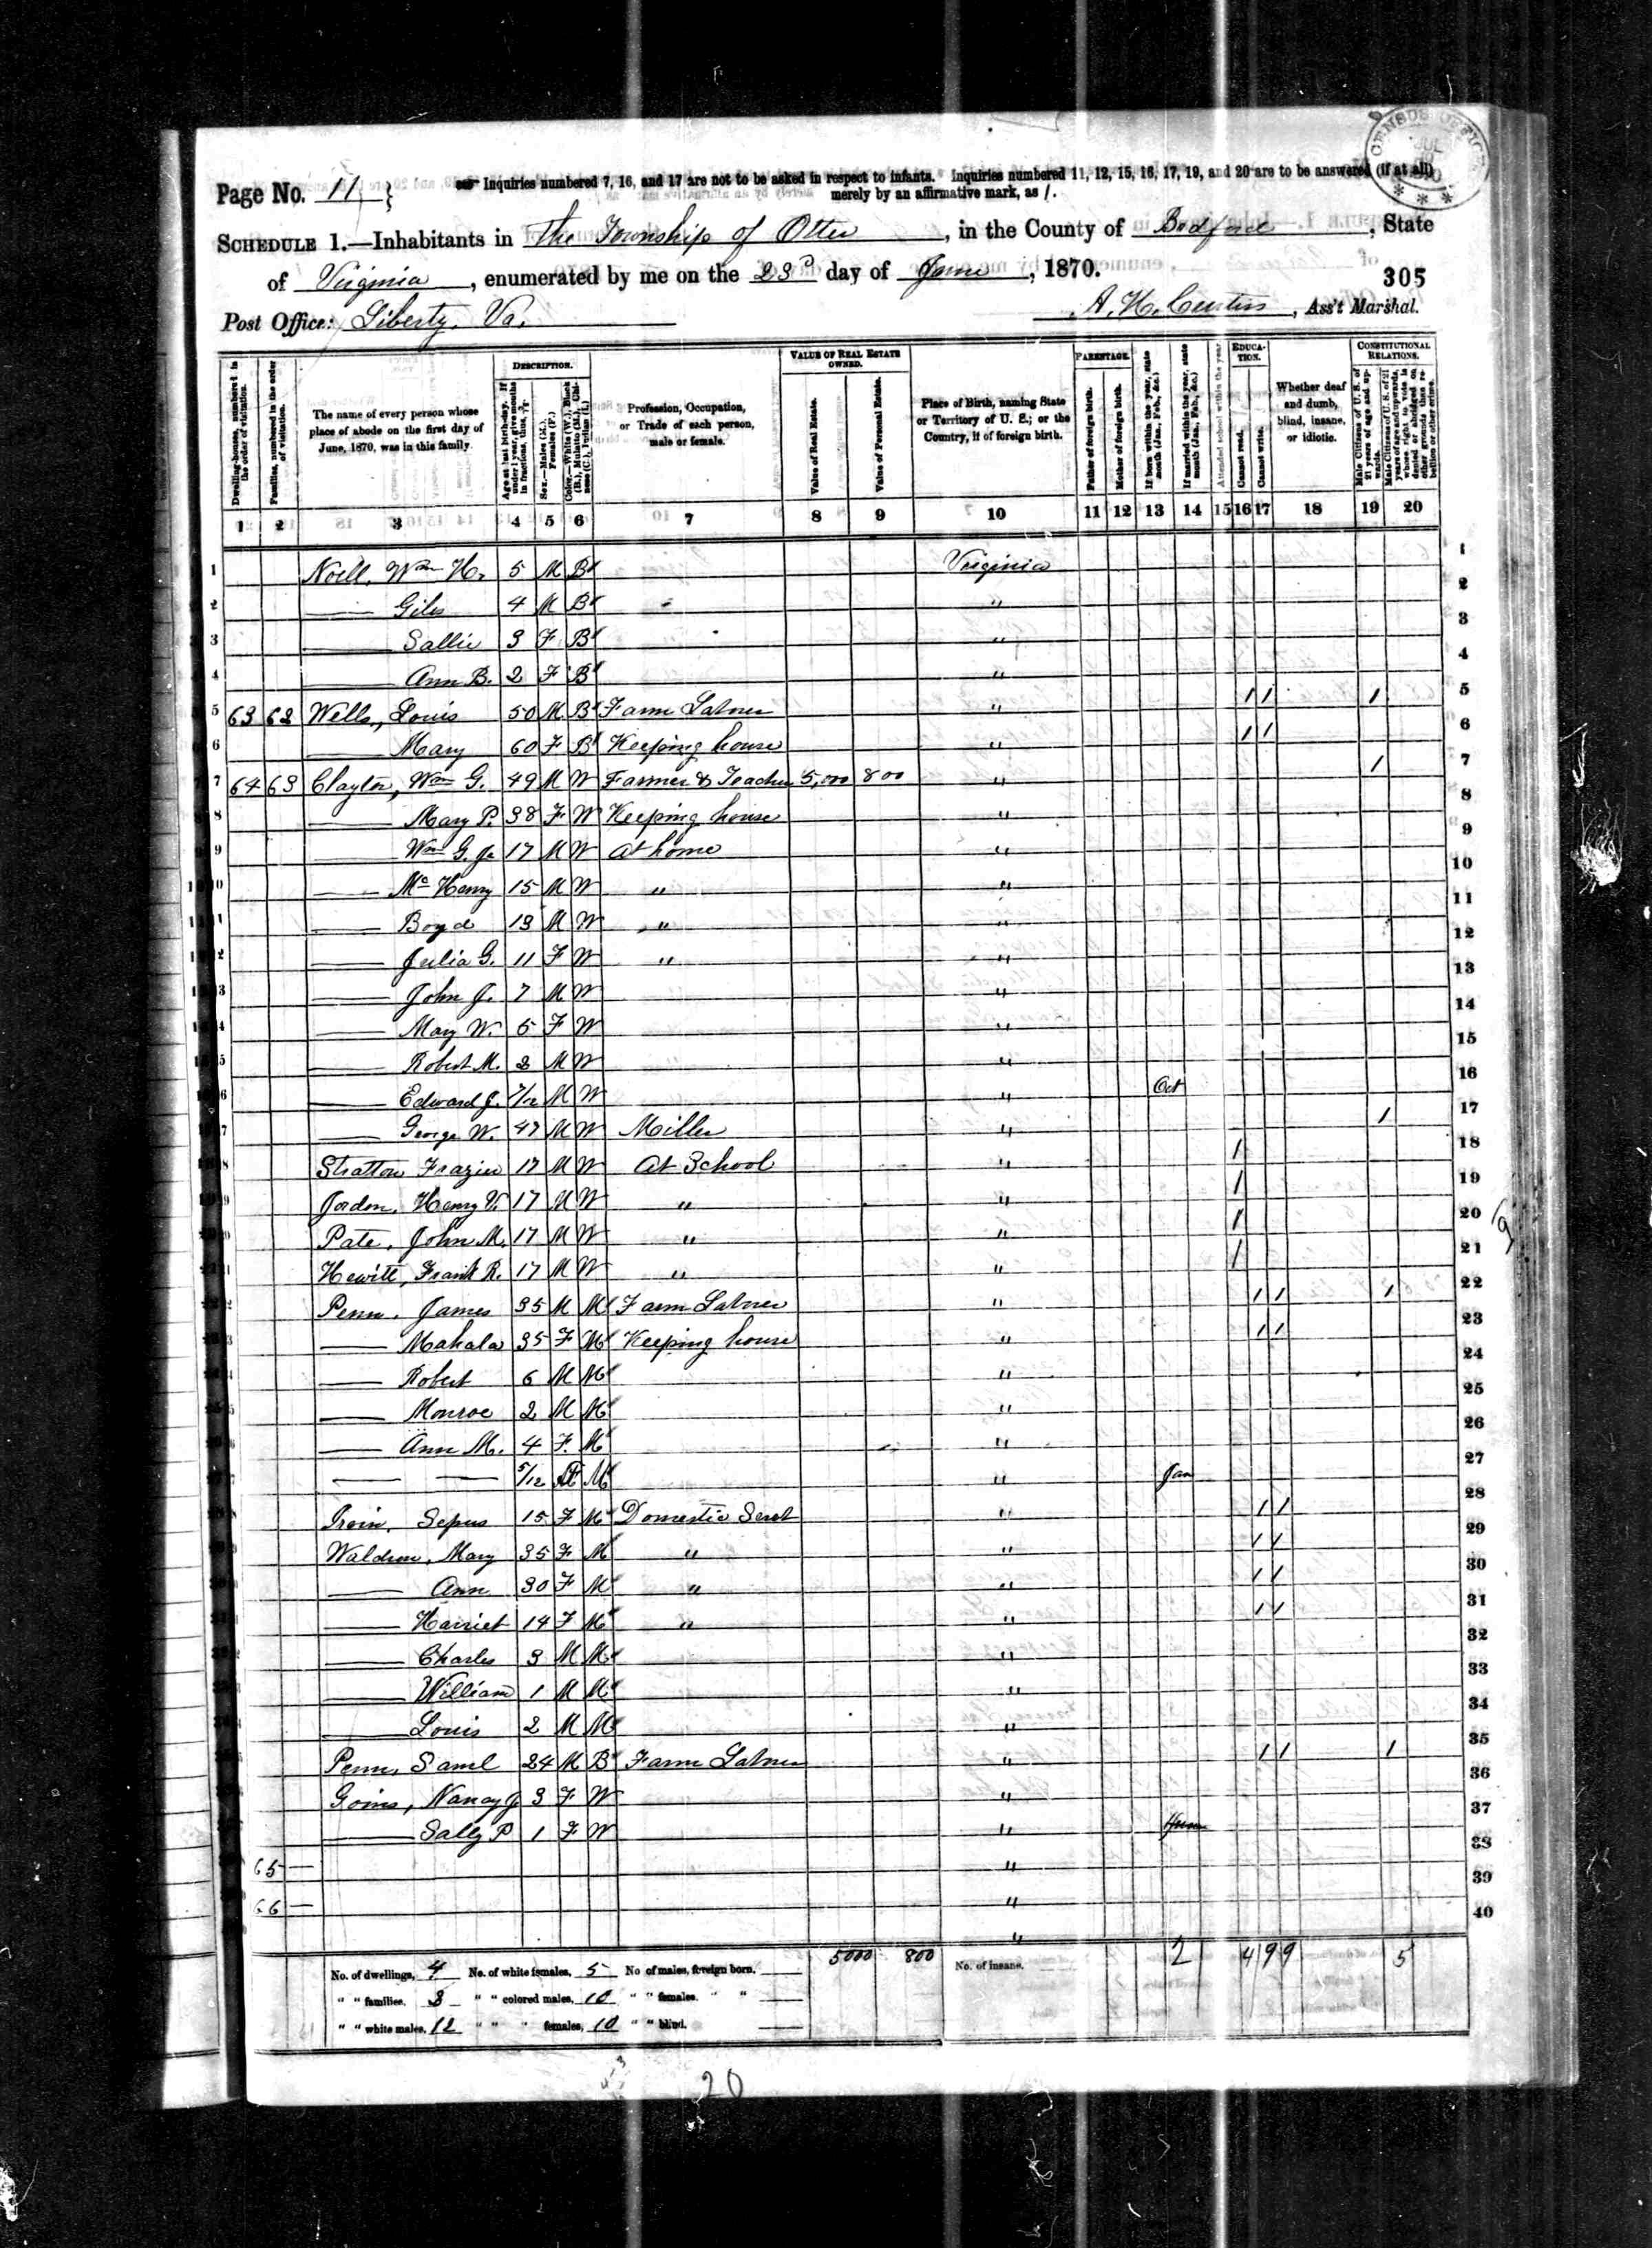 CENSUS OFFICE JUL
Page No. 11
Inquiries numbered 7, 16, and 17 are not to be asked in respect to infants. Inquiries numbered 11, 12, 15, 16, 17, 19, and 20 are to be answered (if at all)
merely by an affirmative mark, as /.
SCHEDULE 1.—Inhabitants in The Township of Otter, in the County of Bedford, State
of Virginia, enumerated by me on the 23d day of June, 1870.
305
Post Office: Liberty, Va.
A. H. Curtis, Ass't Marshal.
Dwelling-houses, numbered in the order of visitation.
Families, numbered in the order of visitation.
The name of every person whose place of abode on the first day of June, 1870, was in this family.
DESCRIPTION.
Age at last birth-day. If under 1 year, give months in fractions, thus, 3/12.
Sex.—Males (M.), Females (F.)
Color.—White (W.), Black (B.), Mulatto (M.), Chinese (C.), Indian (I.)
Profession, Occupation, or Trade of each person, male or female.
VALUE OF REAL ESTATE OWNED.
Value of Real Estate.
Value of Personal Estate.
Place of Birth, naming State or Territory of U. S.; or the Country, if of foreign birth.
PARENTAGE.
Father of foreign birth.
Mother of foreign birth.
If born within the year, state month (Jan., Feb., &c.)
If married within the year, state month (Jan., Feb., &c.)
Attended school within the year.
EDUCATION.
Cannot read.
Cannot write.
Whether deaf and dumb, blind, insane, or idiotic.
CONSTITUTIONAL RELATIONS.
Male Citizens of U. S. of 21 years of age and upwards.
Male Citizens of U. S. of 21 years of age and upwards, whose right to vote is denied or abridged on other grounds than rebellion or other crime.
1 2 3 4 5 6 7 8 9 10 11 12 13 14 15 16 17 18 19 20
1 Noell, Wm H. 5 M B Virginia 1
2 —— Giles 4 M B " 2
3 —— Sallie 3 F B " 3
4 —— Ann B. 2 F B " 4
5 63 62 Wells, Louis 50 M B Farm Laborer " / / / 5
6 —— Mary 60 F B Keeping house " / / 6
7 64 63 Clayton, Wm G. 49 M W Farmer & Teacher 5,000 800 " / 7
8 —— Mary P. 38 F W Keeping house " 8
9 —— Wm G. Jr 17 M W At home " 9
10 —— Mc Henry 15 M W " " 10
11 —— Boyd 13 M W " " 11
12 —— Julia G. 11 F W " " 12
13 —— John J. 7 M W " 13
14 —— Mary W. 5 F W " 14
15 —— Robert M. 2 M W " 15
16 —— Edward J. 7/12 M W " Oct 16
17 —— George W. 47 M W Miller " / 17
18 Stratton Frazier 17 M W At School " / 18
19 Jordon, Henry V. 17 M W " " / 19
20 Pate, John M. 17 M W " " / 20
21 Hewitt, Frank R. 17 M W " " / 21
22 Penn, James 35 M M Farm Laborer " / / / 22
23 —— Mahala 35 F M Keeping house " / / 23
24 —— Robert 6 M M " 24
25 —— Monroe 2 M M " 25
26 —— Ann M. 4 F. M " 26
27 —— —— 5/12 F. M " Jan 27
28 Irvin, Sepus 15 F M Domestic Servt " / / 28
29 Waldron, Mary 35 F M " " / / 29
30 —— Ann 30 F M " " / / 30
31 —— Harriet 14 F M " " / / 31
32 —— Charles 3 M M " 32
33 —— William 1 M M " 33
34 —— Louis 2 M M " 34
35 Penn, Saml 24 M B Farm Laborer " / / / 35
36 Goins, Nancy J 3 F W " 36
37 —— Sally P 1 F W " June 37
65 — " 38
66 — " 39
" 40
No. of dwellings, 4 No. of white females, 5 No of males, foreign born. 5000 800 No. of insane. 2 4 9 9 5
" " families. 3 " " colored males, 10 " " females. " "
" " white males, 12 " " " females, 10 " " blind.
20